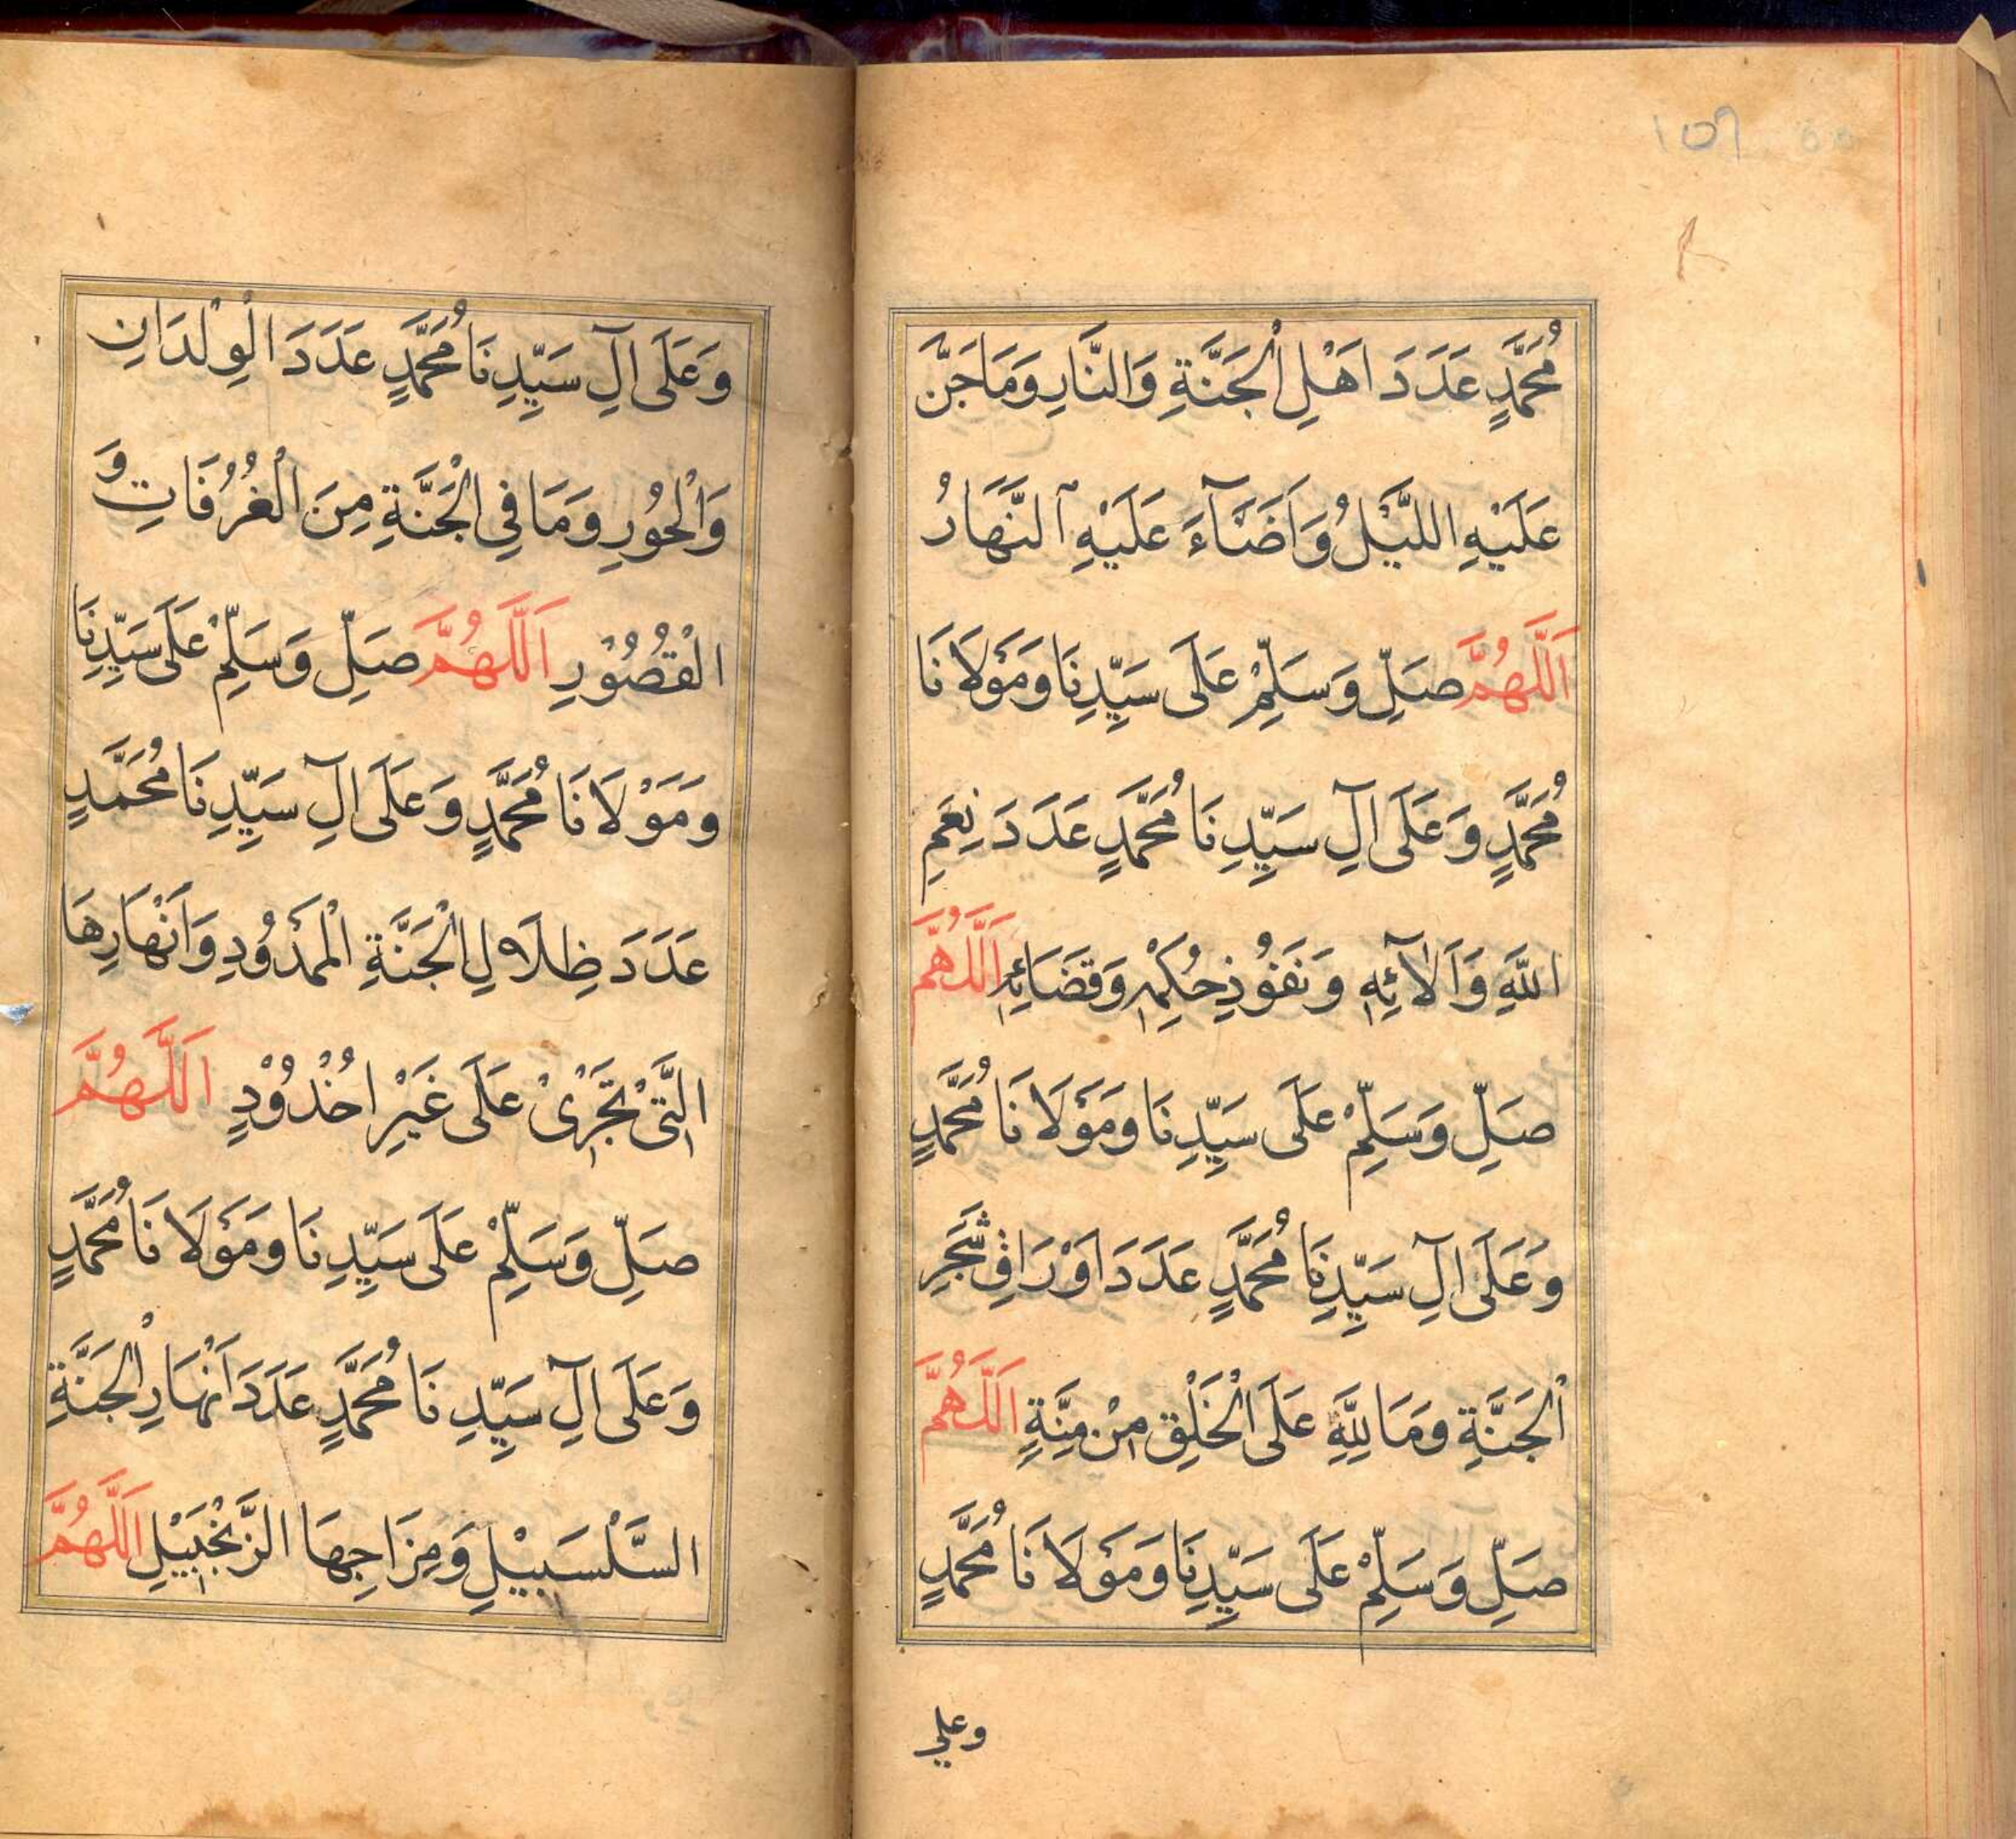 ١٥٦
مُحَمَّدٍ عَدَدَ اَهْلِ الْجَنَّةِ وَالنَّارِ وَمَا جَنَّ
عَلَيْهِ اللَّيْلُ وَاَضَآءَ عَلَيْهِ النَّهَارُ
اَللَّهُمَّ صَلِّ وَسَلِّمْ عَلَى سَيِّدِنَا وَمَوْلَانَا
مُحَمَّدٍ وَعَلَى اٰلِ سَيِّدِنَا مُحَمَّدٍ عَدَدَ نِعَمِ
اللهِ وَاَلآئِهٖ وَنَفُوْذِ حُكْمِهٖ وَقَضَائِهٖ اَللَّهُمَّ
صَلِّ وَسَلِّمْ عَلَى سَيِّدِنَا وَمَوْلَانَا مُحَمَّدٍ
وَعَلَى اٰلِ سَيِّدِنَا مُحَمَّدٍ عَدَدَ اَوْرَاقِ شَجَرِ
الْجَنَّةِ وَمَا لِلّٰهِ عَلَى الْخَلْقِ مِنْ مِنَّةٍ اَللَّهُمَّ
صَلِّ وَسَلِّمْ عَلَى سَيِّدِنَا وَمَوْلَانَا مُحَمَّدٍ
وعلي
وَعَلَى اٰلِ سَيِّدِنَا مُحَمَّدٍ عَدَدَ الْوِلْدَانِ
وَالْحُوْرِ وَمَا فِي الْجَنَّةِ مِنَ الْغُرُفَاتِ وَ
الْقُصُوْرِ اَللَّهُمَّ صَلِّ وَسَلِّمْ عَلَى سَيِّدِنَا
وَمَوْلَانَا مُحَمَّدٍ وَعَلَى اٰلِ سَيِّدِنَا مُحَمَّدٍ
عَدَدَ ظِلَالِ الْجَنَّةِ الْمَمْدُوْدِ وَاَنْهَارِهَا
الَّتِيْ تَجْرِيْ عَلَى غَيْرِ اُخْدُوْدٍ اَللَّهُمَّ
صَلِّ وَسَلِّمْ عَلَى سَيِّدِنَا وَمَوْلَانَا مُحَمَّدٍ
وَعَلَى اٰلِ سَيِّدِنَا مُحَمَّدٍ عَدَدَ اَنْهَارِ الْجَنَّةِ
السَّلْسَبِيْلِ وَمِزَاجِهَا الزَّنْجَبِيْلِ اَللَّهُمَّ